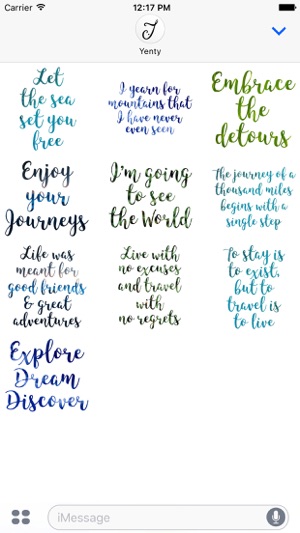 Carrier 12:17 PM
Yenty
Let
the sea
set you
free
I yearn for
mountains that
I have never
even seen
Embrace
the
detours
Enjoy
your
Journeys
I'm going
to see
the World
The journey of a
thousand miles
begins with a
single step
Life was
meant for
good friends
& great
adventures
Live with
no excuses
and travel
with
no regrets
To stay is
to exist,
but to
travel is
to live
Explore
Dream
Discover
iMessage